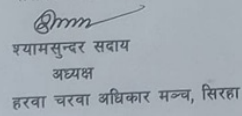 श्यामसुन्दर सदाय
अध्यक्ष
हरवा चरवा अधिकार मञ्च, सिरहा